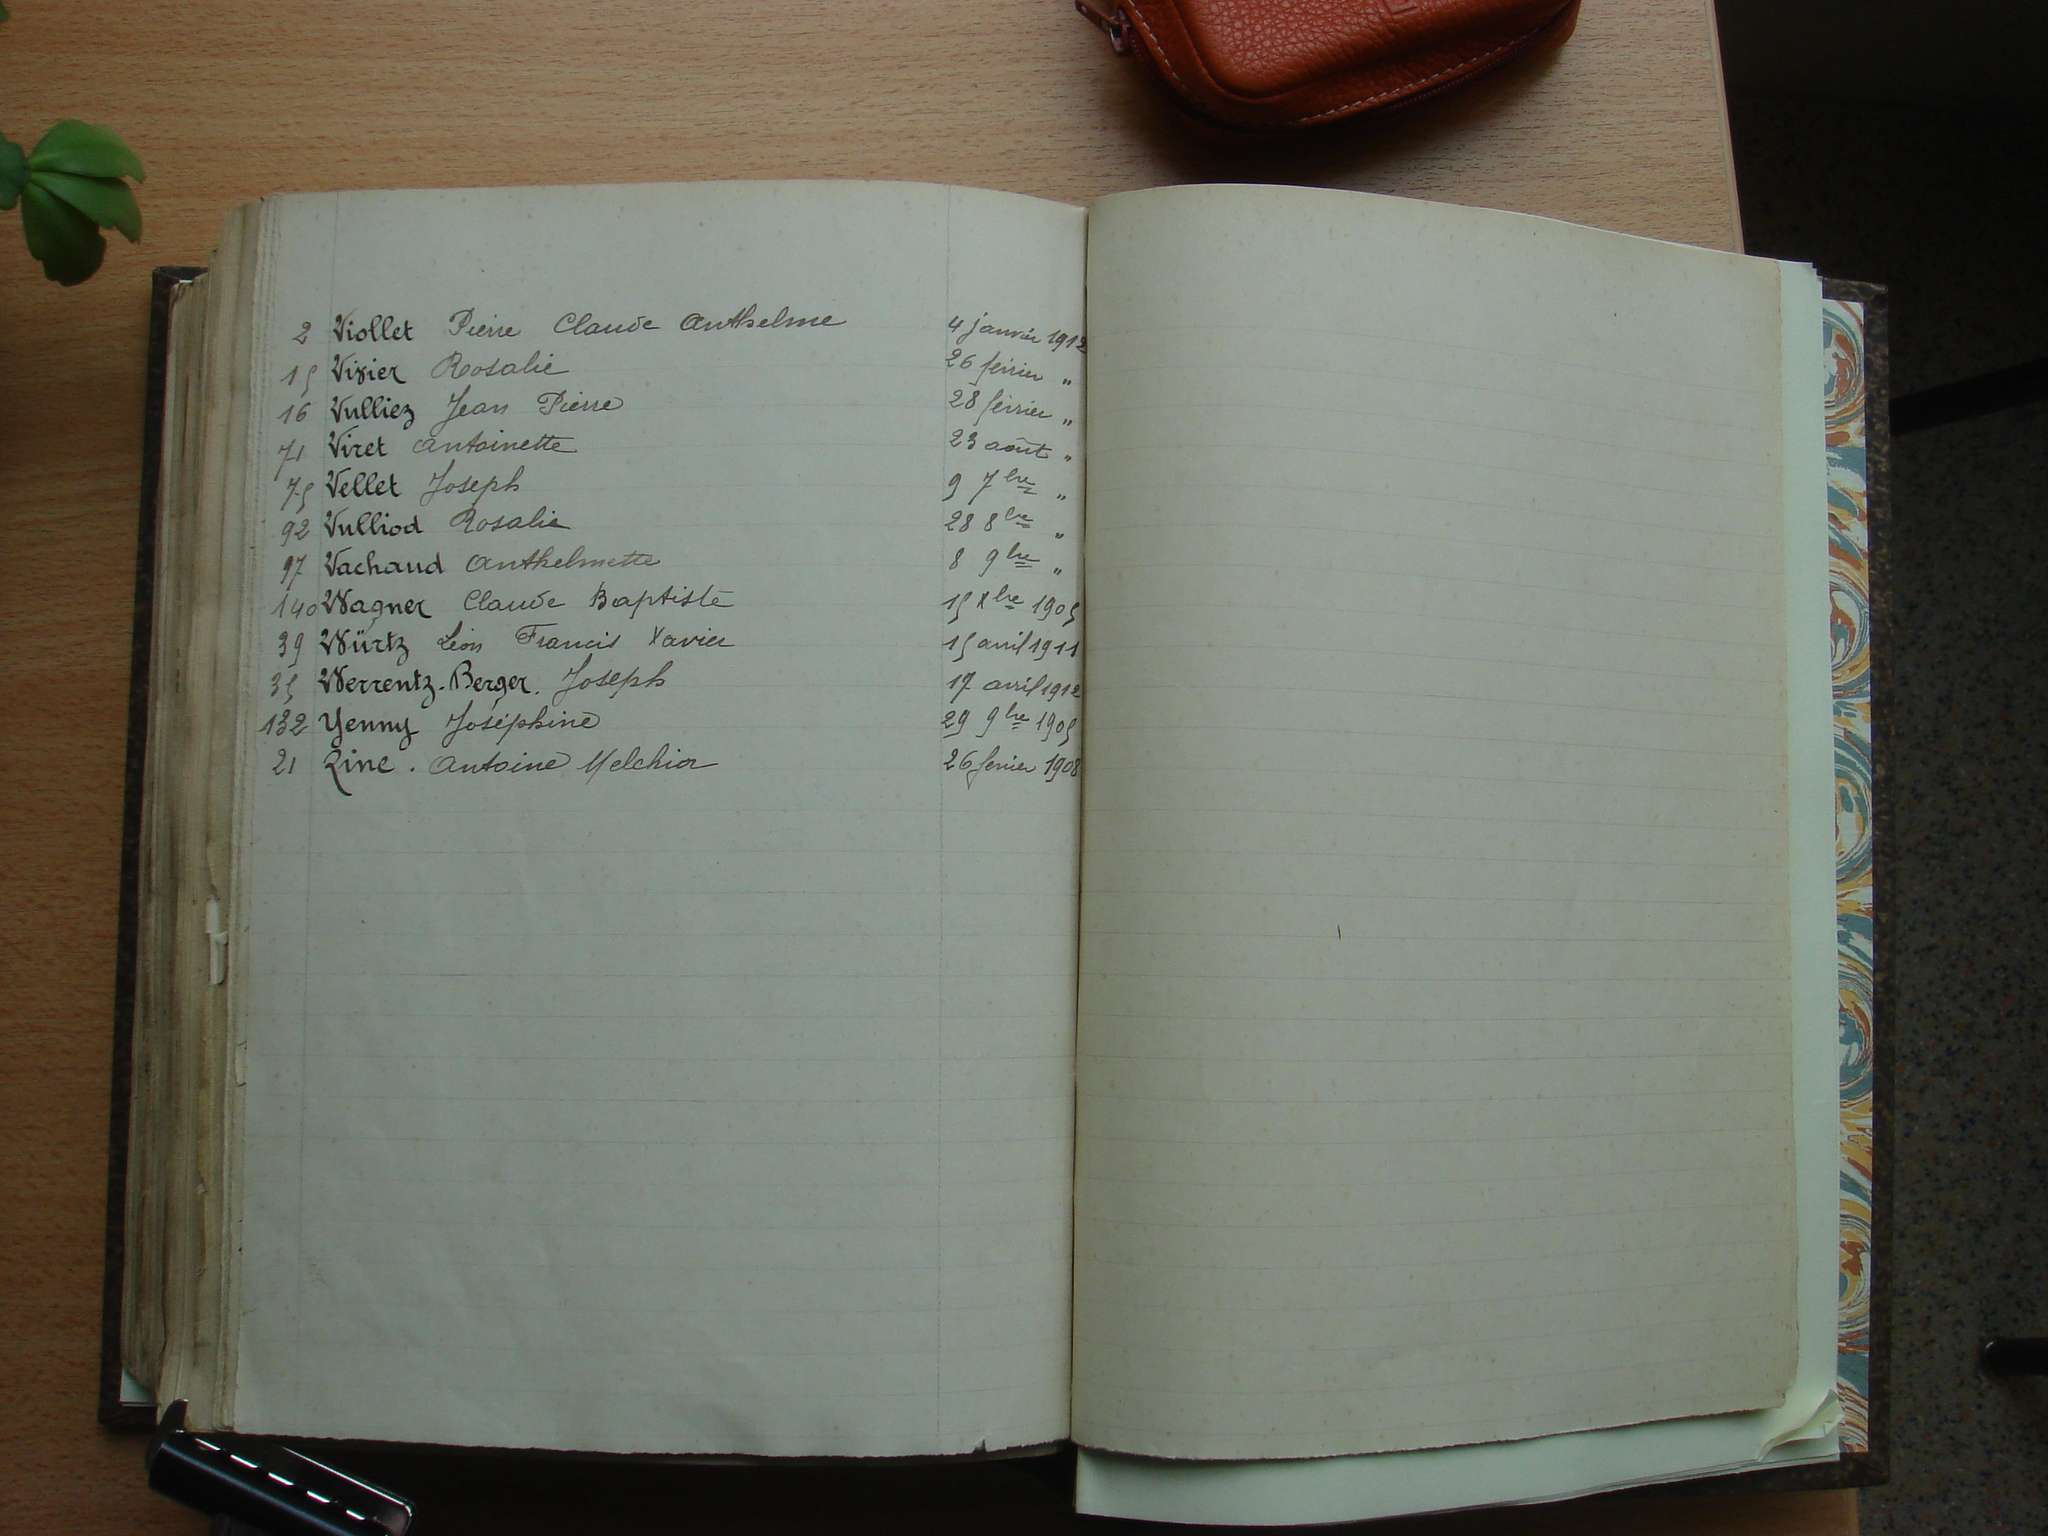 2 Viollet Pierre Claude Anthelme 4 janvier 1912
15 Vivier Rosalie 26 février "
16 Vulliez Jean Pierre 28 février "
71 Viret Antoinette 23 août "
75 Vellet Joseph 9 7bre "
92 Vulliod Rosalie 28 8bre "
97 Vachaud Anthelmette 8 9bre "
140 Wagner Claude Baptiste 15 Xbre 1905
39 Würtz Léon Francis Xavier 15 avril 1911
35 Werrentz-Berger. Joseph 17 avril 1912
132 Yenny Joséphine 29 9bre 1905
21 Zine. Antoine Melchior 26 fevrier 1908